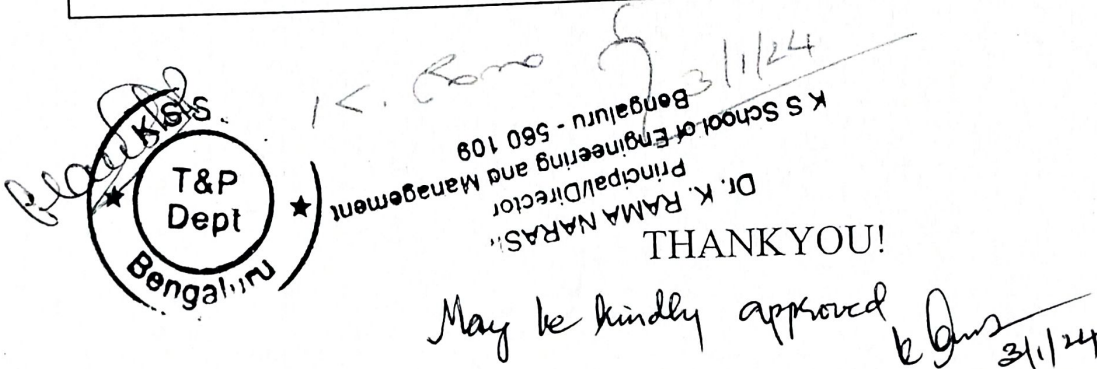 K. Rama
3/1/24
K.S.S.
T&P
Dept
Bengaluru
Dr. K. RAMA NARAS
Principal/Director
K S School of Engineering and Management
Bengaluru - 560 109
THANKYOU!
May be kindly approved
3/1/24